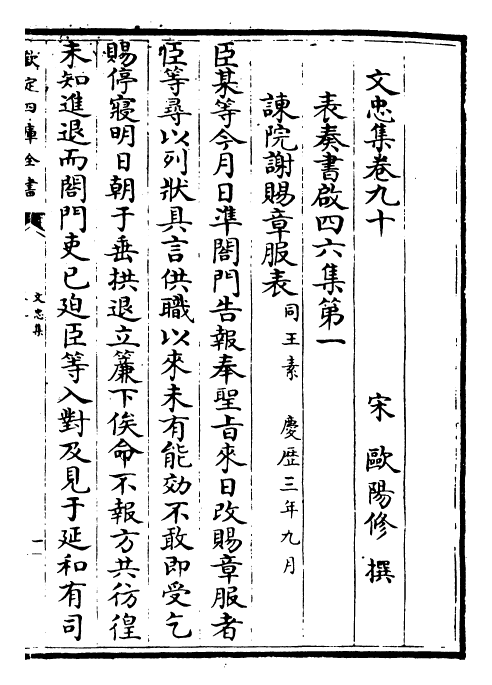 文忠集卷九十
宋 歐陽修 撰
表奏書啟四六集第一
諫院謝賜章服表 同王素 慶歷三年九月
臣某等今月日準閤門告報奉聖旨來日改賜章服者
臣等尋以列狀具言供職以來未有能効不敢即受乞
賜停寢明日朝于垂拱退立簾下俟命不報方共彷徨
未知進退而閤門吏已迫臣等入對及見于延和有司
欽定四庫全書
文忠集
一